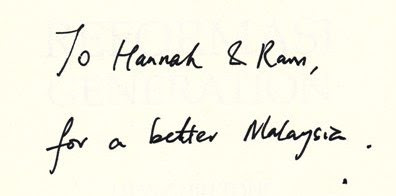 To Hannah & Ram,
for a better Malaysia.